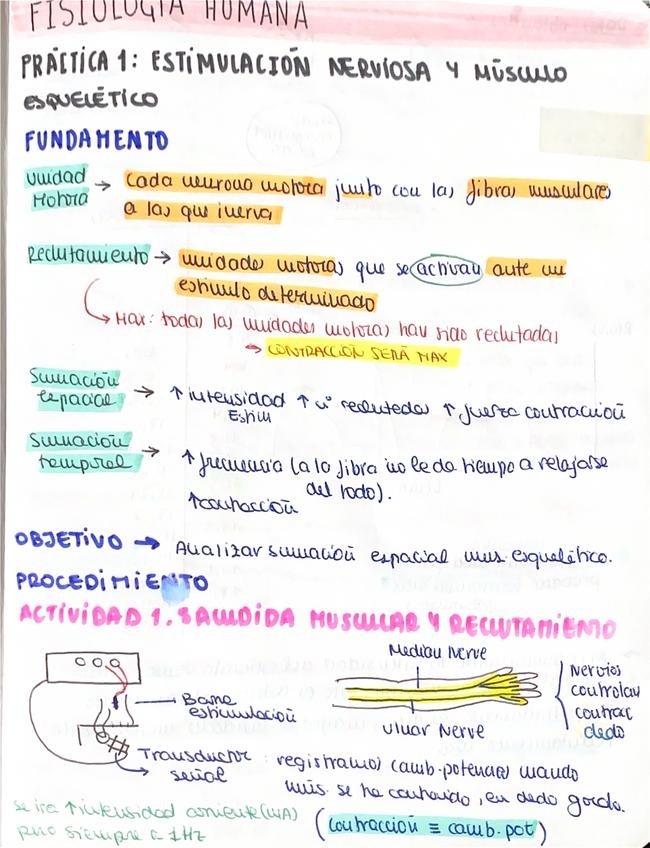 FISIOLOGÍA HUMANA
PRÁCTICA 1: ESTIMULACIÓN NERVIOSA Y MÚSCULO
ESQUELÉTICO
FUNDAMENTO
Unidad
Motora → Cada neurona motora junto con las fibras musculares
a las que inerva
Reclutamiento → unidades motoras que se activan ante un
estímulo determinado
→ Max: todas las unidades motoras han sido reclutadas
→ CONTRACCIÓN SERÁ MAX
Sumación
espacial → ↑ intensidad ↑ nº reclutadas ↑ fuerza contracción
Estim
Sumación
temporal → ↑ frecuencia (a la fibra no le da tiempo a relajarse
del todo).
↑ contracción
OBJETIVO → Analizar sumación espacial mus. esquelético.
PROCEDIMIENTO
ACTIVIDAD 1. SACUDIDA MUSCULAR Y RECLUTAMIENTO
Median Nerve
Barra
estimulación
Ulnar Nerve
Nervios
controlan
contrac
dedo
Transductor : registramos camb. potencia cuando
señal
mús. se ha contraído, en dedo gordo.
se irá ↑ intensidad corriente (mA)
pero siempre a 1Hz
(contracción ≡ camb. pot)